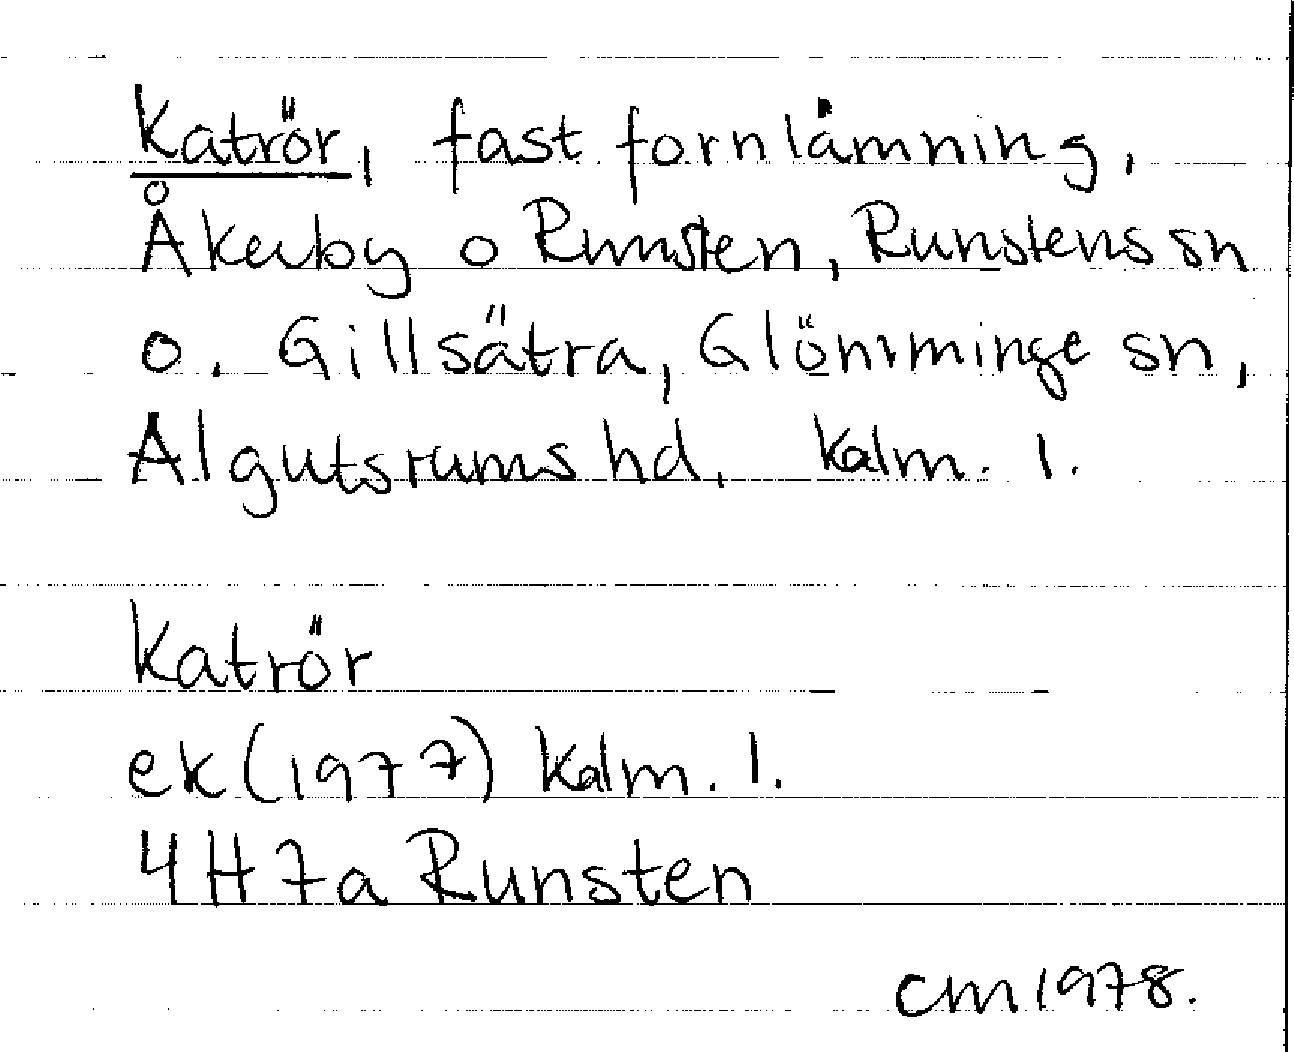 Katrör, fast fornlämning,
Åkerby o Runsten, Runstens sn
o. Gillsätra, Glömminge sn,
Algutsrums hd. Kalm. l.
Katrör
ek (1977) Kalm. l.
4H 7a Runsten
CM 1978.